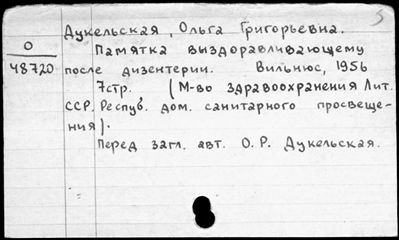 5
Дукельская, Ольга Григорьевна.
О
48720
Памятка выздоравливающему
после дизентерии. Вильнюс, 1956
7стр. (М-во здравоохранения Лит.
ССР. Респуб. дом. санитарного просвеще-
ния).
Перед загл. авт. О.Р. Дукельская.